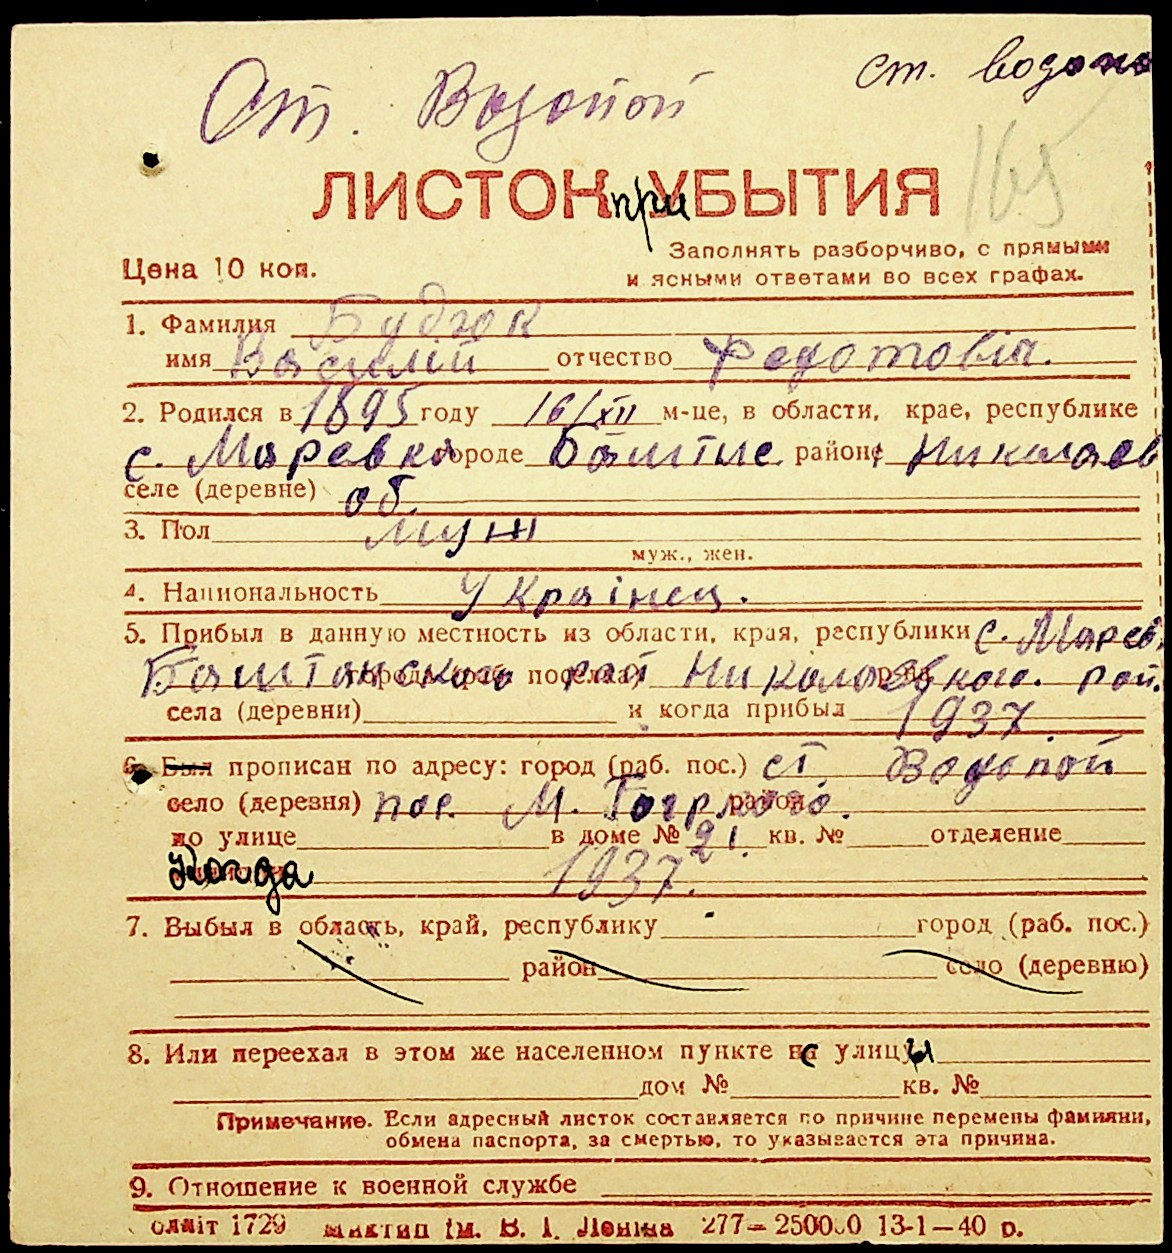 ст. водопо
Ст. Водопой
ЛИСТОК при УБЫТИЯ 165
Заполнять разборчиво, с прямыми
Цена 10 коп. и ясными ответами во всех графах.
1. Фамилия Будзюк
имя Василий отчество Федотовіч.
2. Родился в 1895 году 16/XII м-це, в области, крае, республике
с. Маревка городе Баштне районе Николаев
селе (деревне) об.
3. Пол муж
муж., жен.
4. Национальность Українец.
5. Прибыл в данную местность из области, края, республики с. Марев.
Баштанского рай Николаевкого. рай.
села (деревни) и когда прибыл 1937.
6. Был прописан по адресу: город (раб. пос.) ст. Водопой
село (деревня) пос. М. Горького. район
по улице в доме № 21. кв. № отделение
Когда 1937.
7. Выбыл в область, край, республику город (раб. пос.)
район село (деревню)
8. Или переехал в этом же населенном пункте с улицы
дом № кв. №
Примечание. Если адресный листок составляется по причине перемены фамилии,
обмена паспорта, за смертью, то указывается эта причина.
9. Отношение к военной службе
1729 ім. В. І. Леніна 277—250000 13-1—40 р.